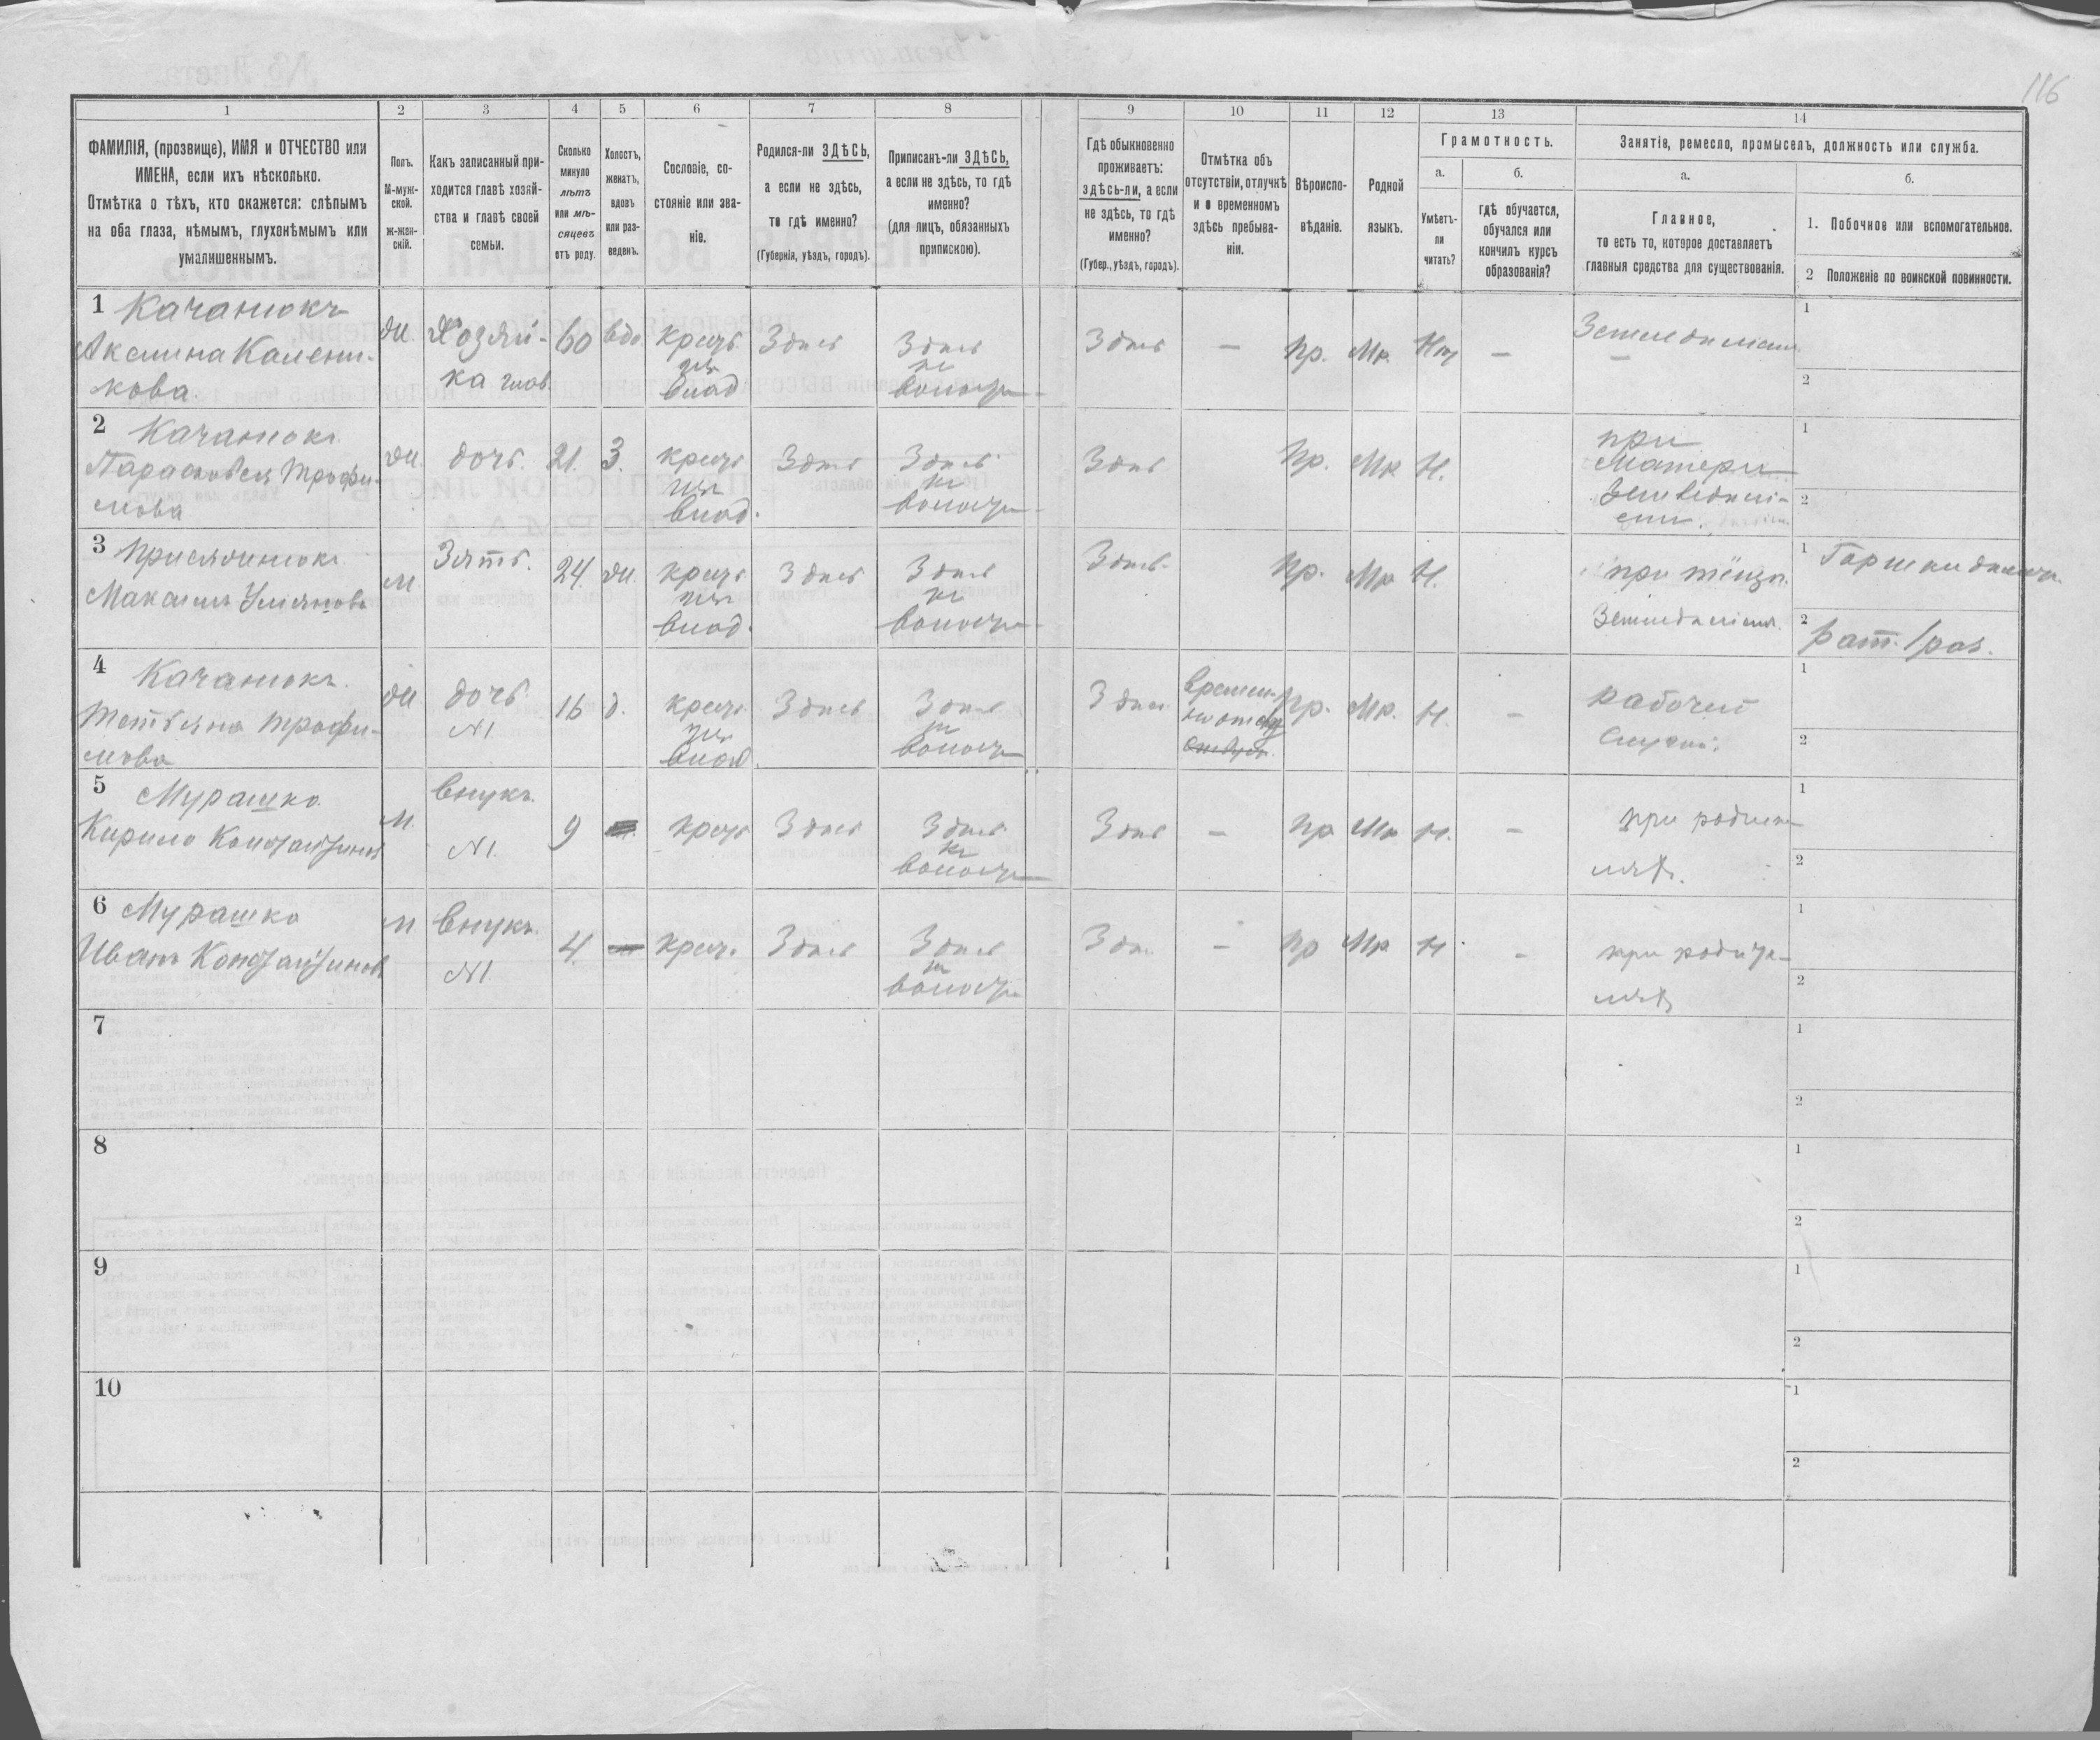 116
1
2
3
4
5
6
7
8
9
10
11
12
13
14
ФАМИЛІЯ, (прозвище), ИМЯ и ОТЧЕСТВО или
ИМЕНА, если ихъ нѣсколько.
Отмѣтка о тѣхъ, кто окажется: слѣпымъ
на оба глаза, нѣмымъ, глухонѣмымъ или
умалишеннымъ.
Полъ.
М-муж-
ской.
Ж-жен-
скій.
Какъ записанный при-
ходится главѣ хозяй-
ства и главѣ своей
семьи.
Сколько
минуло
лѣтъ
или мѣ-
сяцевъ
отъ роду.
Холостъ,
женатъ,
вдовъ
или раз-
веденъ.
Сословіе, со-
стояніе или зва-
ніе.
Родился-ли ЗДѢСЬ,
а если не здѣсь,
то гдѣ именно?
(Губернія, уѣздъ, городъ).
Приписанъ-ли ЗДѢСЬ,
а если не здѣсь, то гдѣ
именно?
(для лицъ, обязанныхъ
припискою).
Гдѣ обыкновенно
проживаетъ:
здѣсь-ли, а если
не здѣсь, то гдѣ
именно?
(Губер., уѣздъ, городъ).
Отмѣтка объ
отсутствіи, отлучкѣ
и о временномъ
здѣсь пребыва-
ніи.
Вѣроиспо-
вѣданіе.
Родной
языкъ.
Грамотность.
а.
Умѣетъ-
ли
читать?
б.
гдѣ обучается,
обучался или
кончилъ курсъ
образованія?
Занятіе, ремесло, промыселъ, должность или служба.
а.
Главное,
то есть то, которое доставляетъ
главныя средства для существованія.
б.
1. Побочное или вспомогательное.
2 Положеніе по воинской повинности.
1 Качанюкъ
Акелина Калени-
кова.
Ж Хозяй-
ка
60 вдо. крест.
влад
Здѣсь
Здѣсь
волости
Здѣсь
—
пр. Мр. Нѣт —
1
2
2 Качанюкъ
Парасковея Трофи-
мова
Ж. дочь. 21. З. крест
влад.
Здѣсь
Здѣсь
волости
Здѣсь
пр. Мр. Н.
при
Матери
1
2
3
Макаимъ
М Зять. 24. Ж. крест
влад.
Здѣсь
Здѣсь
волости
Здѣсь.
пр. Мр Н.
при
1
2 рат. 1 раз.
4 Качанюкъ.
Тетьяна Трофи-
мова
Ж дочь
№1
16 д. крест
влад.
Здѣсь
Здѣсь
волости
Здѣсь
времен-
но
пр. Мр. Н. —
рабочей
1
2
5 Мурашко
Кирило Константинов
М. внукъ.
№1.
9 крест Здѣсь
Здѣсь
волости
Здѣсь — пр Мр Н. —
при родите-
ляхъ.
1
2
6 Мурашко
Иванъ Константинов
М внукъ.
№1.
4. крест. Здѣсь
Здѣсь
волости
Здѣсь — пр Мр Н -
при родите-
ляхъ
1
2
7
1
2
8
1
2
9
1
2
10
1
2